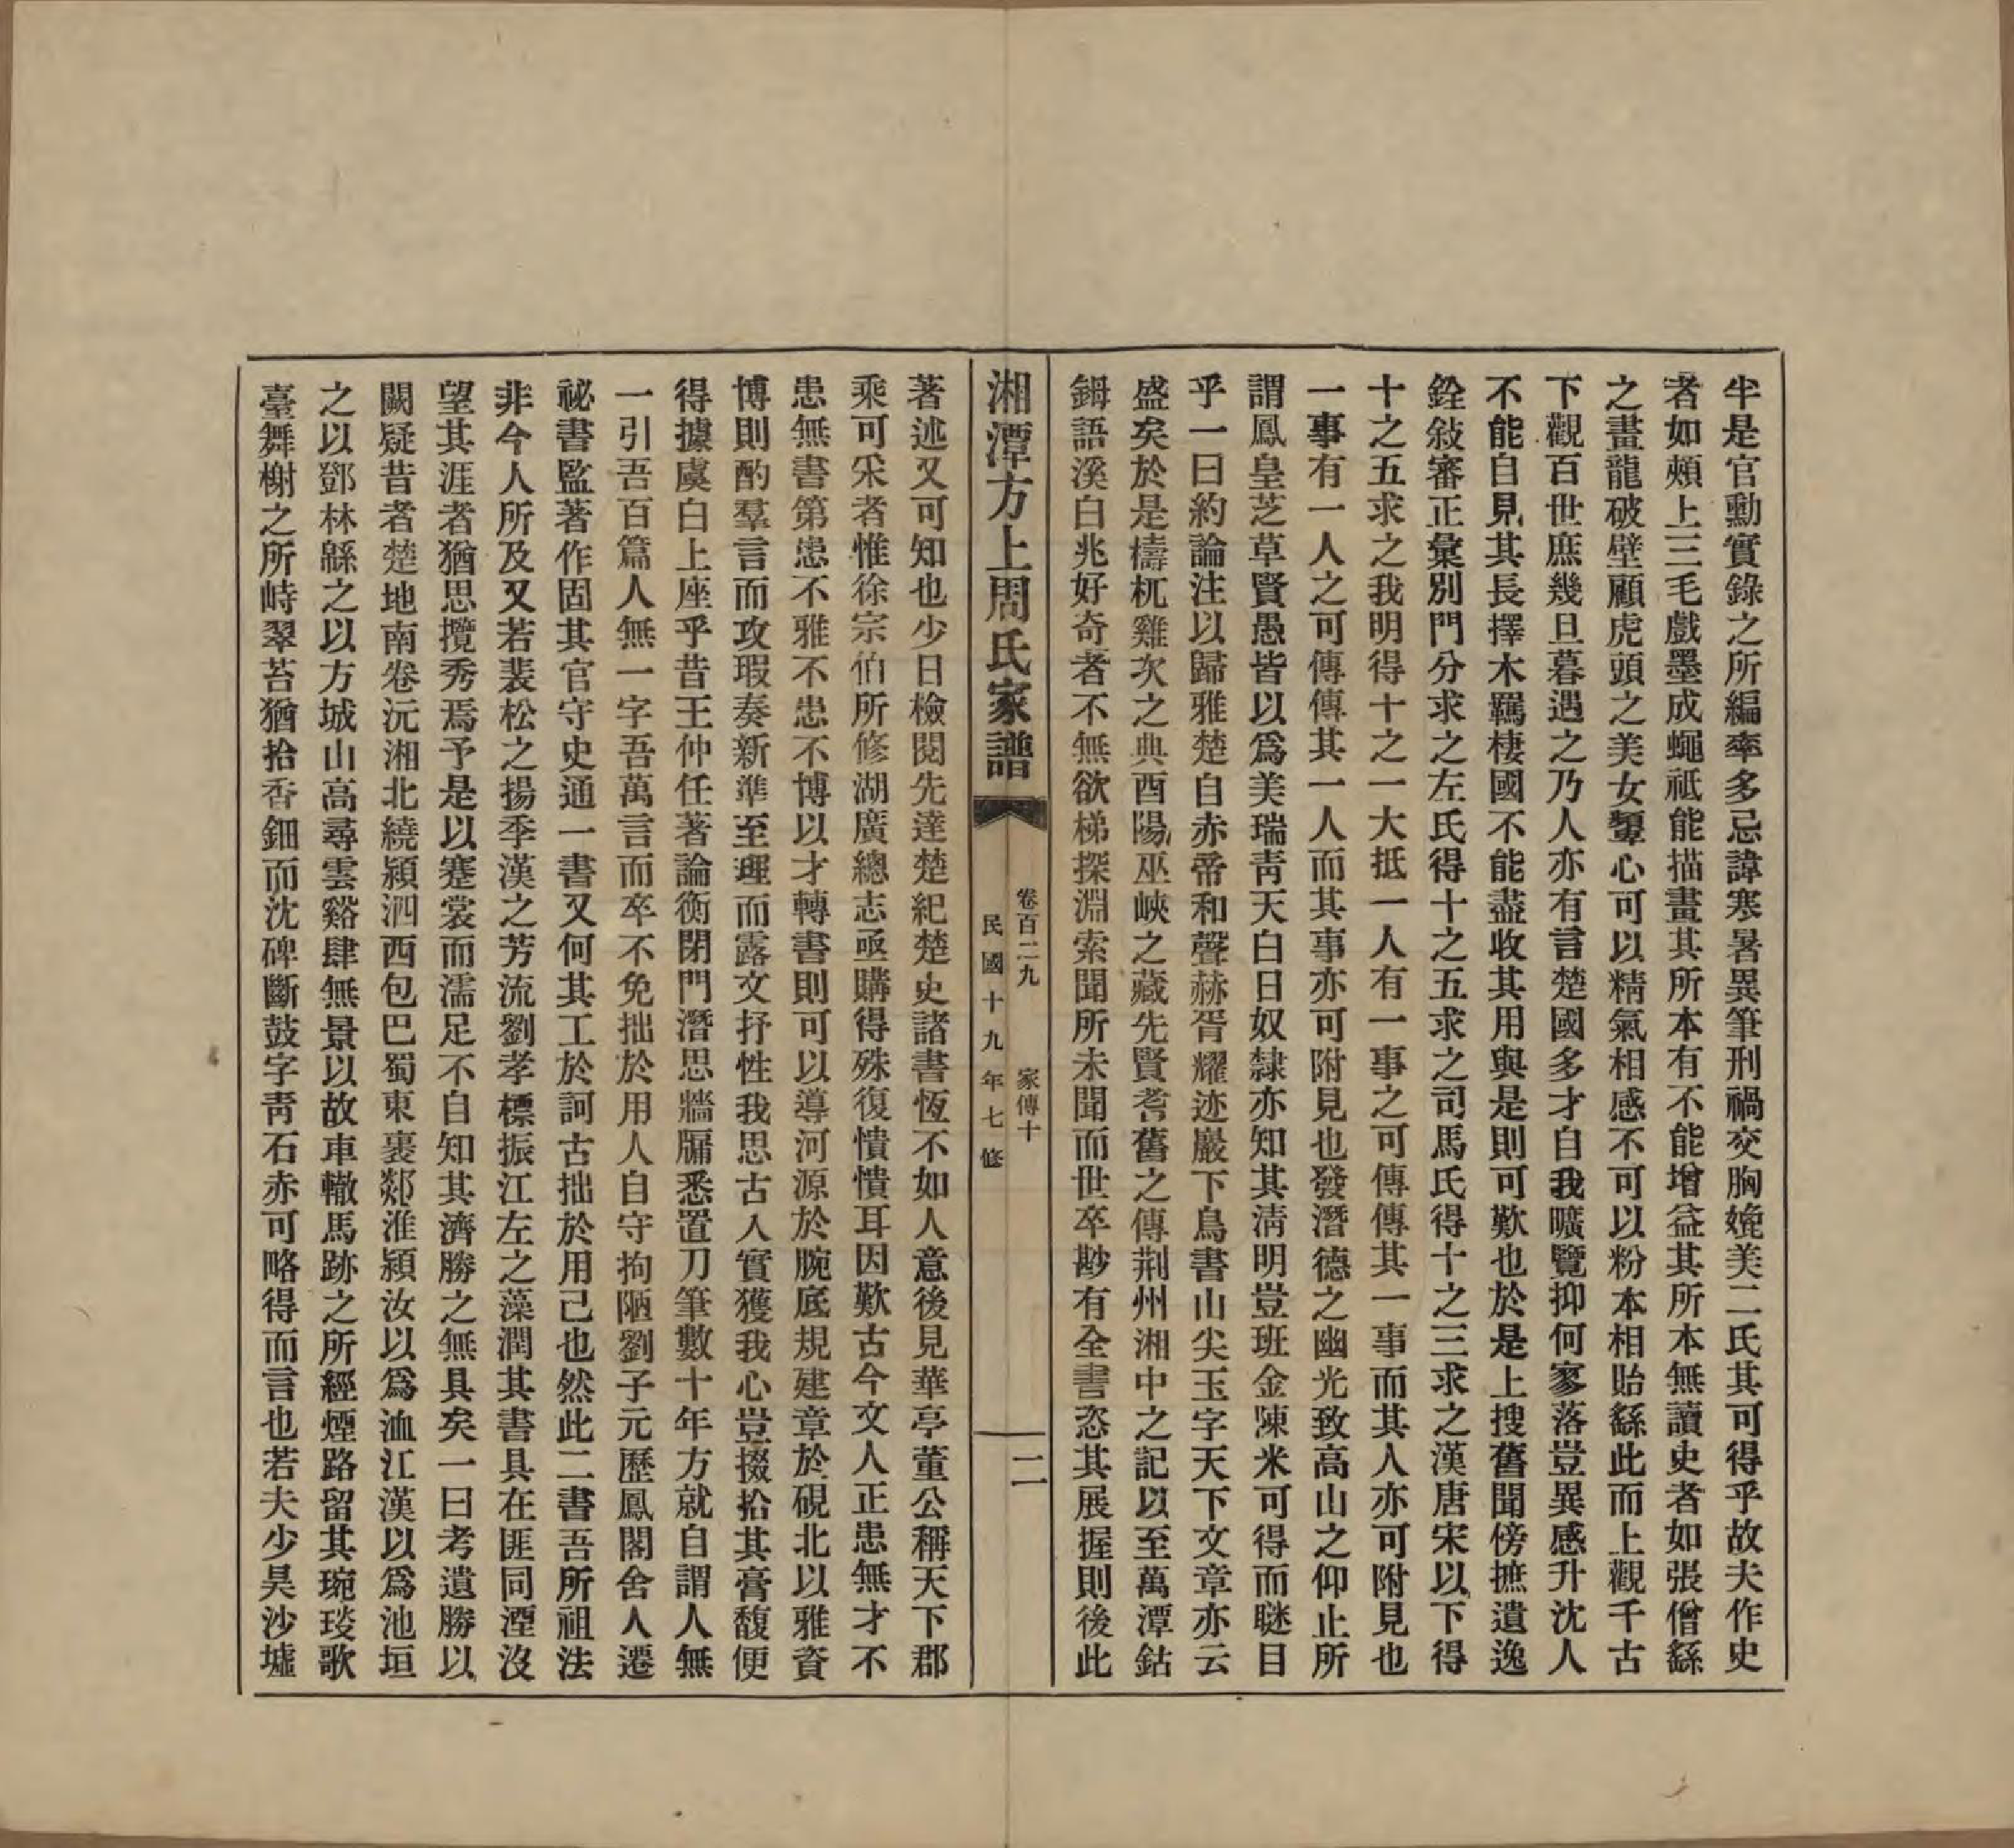 半是官勳實錄之所編率多忌諱寒暑異筆刑禍交胸娩美二氏其可得乎故夫作史
者如頰上三毛戲墨成蠅祗能描畫其所本有不能增益其所本無讀史者如張僧繇
之畫龍破壁顧虎頭之美女顰心可以精氣相感不可以粉本相貽繇此而上觀千古
下觀百世庶幾旦暮遇之乃人亦有言楚國多才自我曠覽抑何寥落豈異感升沈人
不能自見其長擇木羈棲國不能盡收其用與是則可歎也於是上搜舊聞傍摭遺逸
銓敍審正彙別門分求之左氏得十之五求之司馬氏得十之三求之漢唐宋以下得
十之五求之我明得十之一大抵一人有一事之可傳傳其一事而其人亦可附見也
一事有一人之可傳傳其一人而其事亦可附見也發潛德之幽光致高山之仰止所
謂鳳皇芝草賢愚皆以爲美瑞靑天白日奴隸亦知其淸明豈班金陳米可得而瞇目
乎一曰約論注以歸雅楚自赤帝和聲赫胥耀迹巖下鳥書山尖玉字天下文章亦云
盛矣於是檮杌雞次之典酉陽巫峽之藏先賢耆舊之傳荆州湘中之記以至萬潭鈷
鉧語溪白兆好奇者不無欲梯探淵索聞所未聞而世卒尠有全書恣其展握則後此
湘潭方上周氏家譜
卷百二九 家傳十
二
民國十九年七修
著述又可知也少日檢閱先達楚紀楚史諸書恆不如人意後見華亭董公稱天下郡
乘可采者惟徐宗伯所修湖廣總志亟購得殊復憒憒耳因歎古今文人正患無才不
患無書第患不雅不患不博以才轉書則可以導河源於腕底規建章於硯北以雅資
博則酌羣言而攻瑕奏新準至理而露文抒性我思古人實獲我心豈掇拾其膏馥便
得據虞白上座乎昔王仲任著論衡閉門潛思牆牖悉置刀筆數十年方就自謂人無
一引吾百篇人無一字吾萬言而卒不免拙於用人自守拘陋劉子元歷鳳閣舍人遷
祕書監著作固其官守史通一書又何其工於訶古拙於用己也然此二書吾所祖法
非今人所及又若裴松之揚季漢之芳流劉孝標振江左之藻潤其書具在匪同湮沒
望其涯者猶思攬秀焉予是以蹇裳而濡足不自知其濟勝之無具矣一曰考遺勝以
闕疑昔者楚地南卷沅湘北繞潁泗西包巴蜀東裹郯淮潁汝以爲洫江漢以爲池垣
之以鄧林緜之以方城山高尋雲谿肆無景以故車轍馬跡之所經煙路留其琬琰歌
臺舞榭之所峙翠苔猶拾香鈿而沈碑斷鼓字靑石赤可略得而言也若夫少昊沙墟